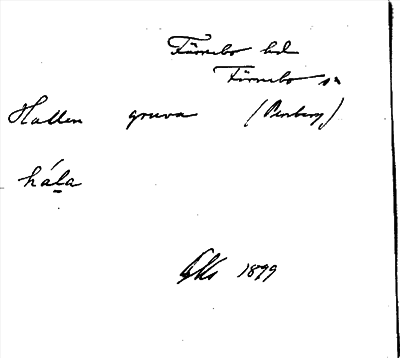 Färnebo hd
Färnebo sn
Hallen gruva (Persberg)
hála
GKs 1899